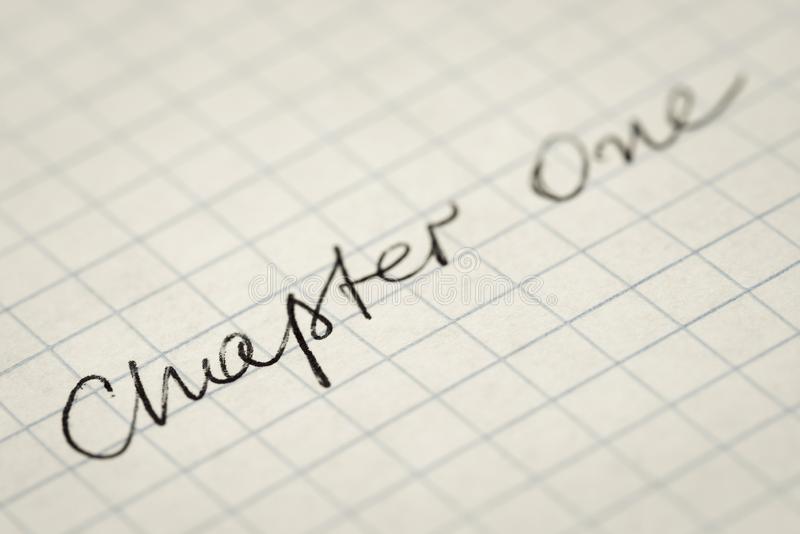 Chapter One
dreamstime